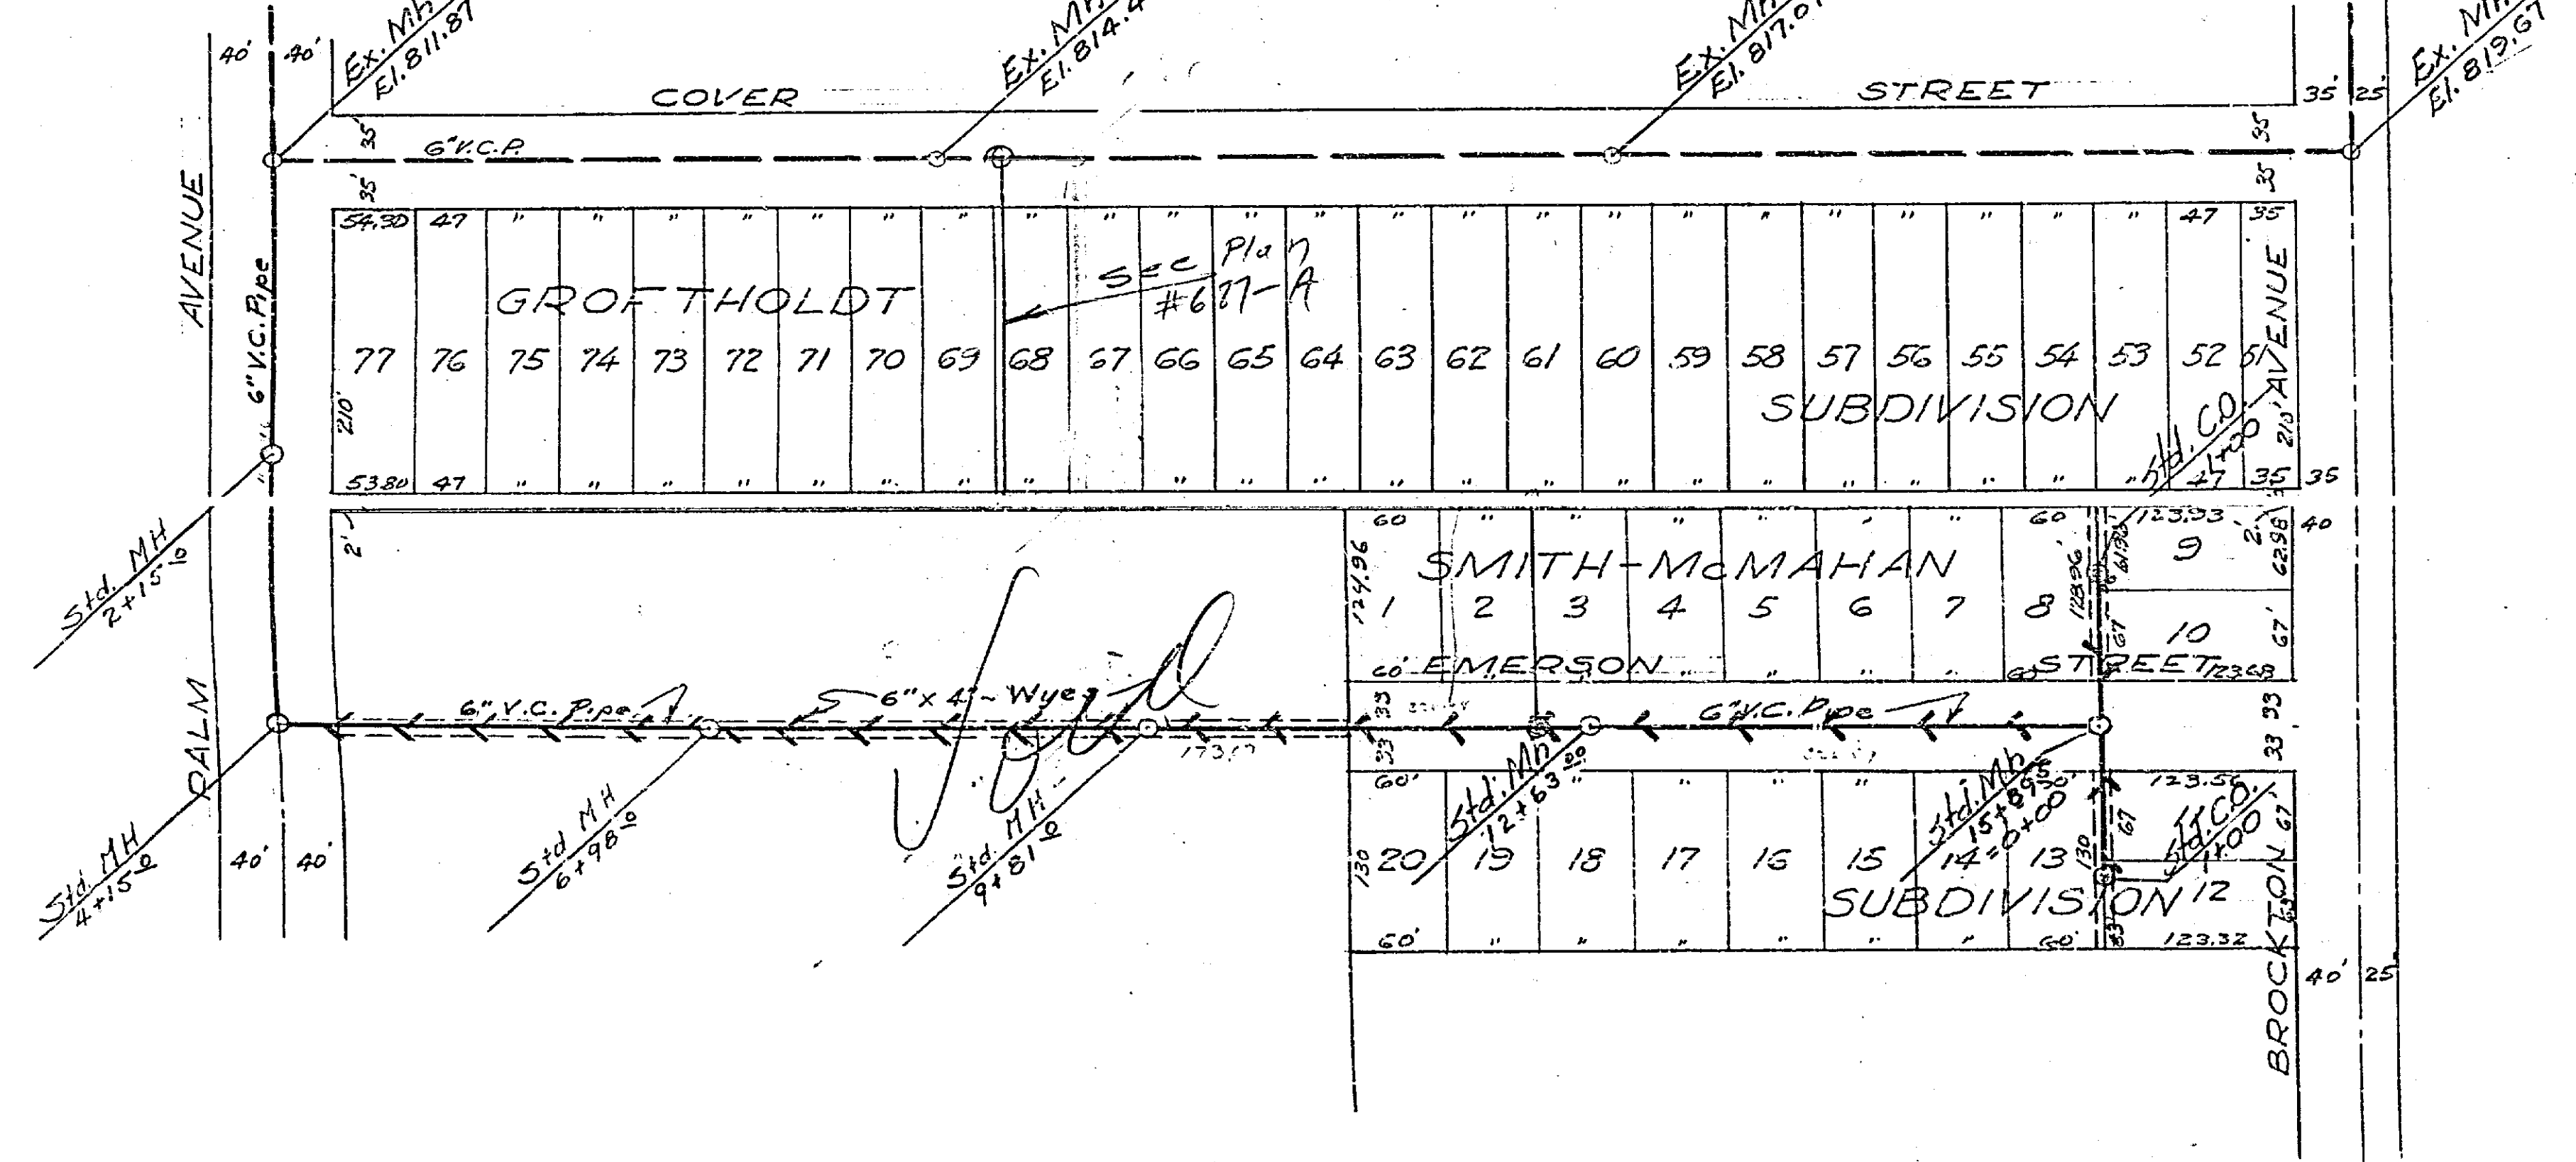 40' 40'
Ex. Mh
El. 811.87
Ex. Mh
El. 814.4
Ex. Mh
El. 817.0
Ex. Mh
El. 819.67
COVER STREET
35' 25'
35'
6" V.C.P.
35
35'
35
AVENUE
6" V.C. Pipe
54.30 47 " " " " " " " " " " " " " " " " " " " " " " " 47 35
See Plan
#677-A
GROFTHOLDT
77 76 75 74 73 72 71 70 69 68 67 66 65 64 63 62 61 60 59 58 57 56 55 54 53 52 51
SUBDIVISION
AVENUE
210'
210'
Std. C.O.
1+00
53.80 47 " " " " " " " " " " " " " " " " " " " " 47 35 35
Std. MH
2+15.0
2'
60 " " " " " " 60 123.93 40
124.96
SMITH-McMAHAN
128.96'
61.98
2'
62.98'
9
1 2 3 4 5 6 7 8
67
10
67'
60' EMERSON " " " " 60 STREET 123.68
33 33
6" V.C. Pipe
6" x 4" - Wyes
6" V.C. Pipe
Void
173.17
33 33
PALM
60' " " " " " 50' 123.56
Std. MH
4+15.0
40' 40'
Std MH
6+98.0
Std. MH
9+81.0
Std. Mh
12+63.00
Std. Mh
15+89.95
=0+00
130
20 19 18 17 16 15 14 13
130
67
Std. C.O.
1+00
67'
SUBDIVISION
12
60' " " " " " 60' 83' 123.32
BROCKTON
40' 25'